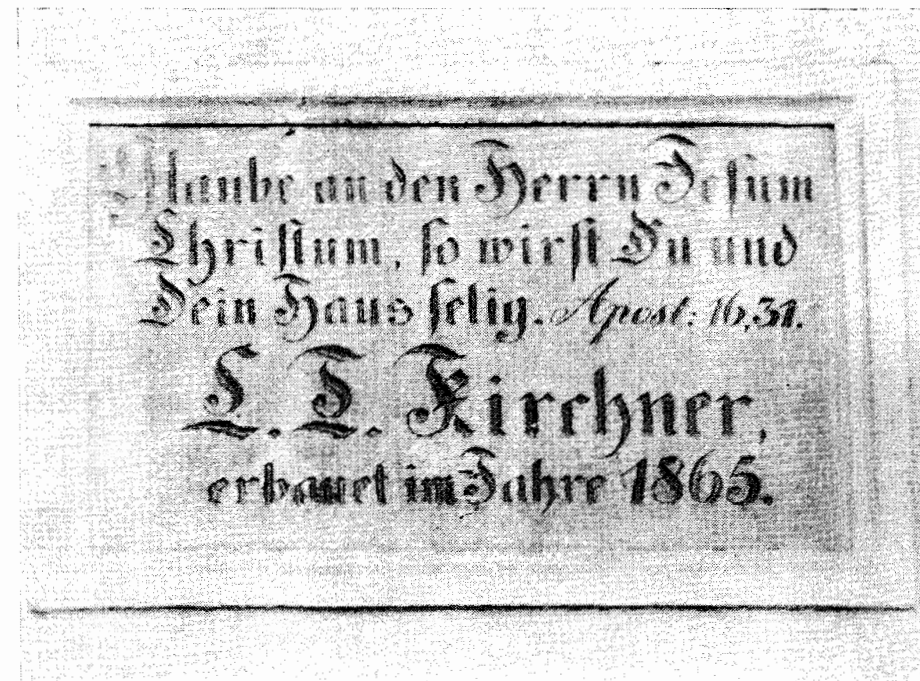 Glaube an den Herrn Jesum
Christum, so wirst Du und
Dein Haus selig. Apost: 16,31.
C. T. Kirchner,
erbauet im Jahre 1865.